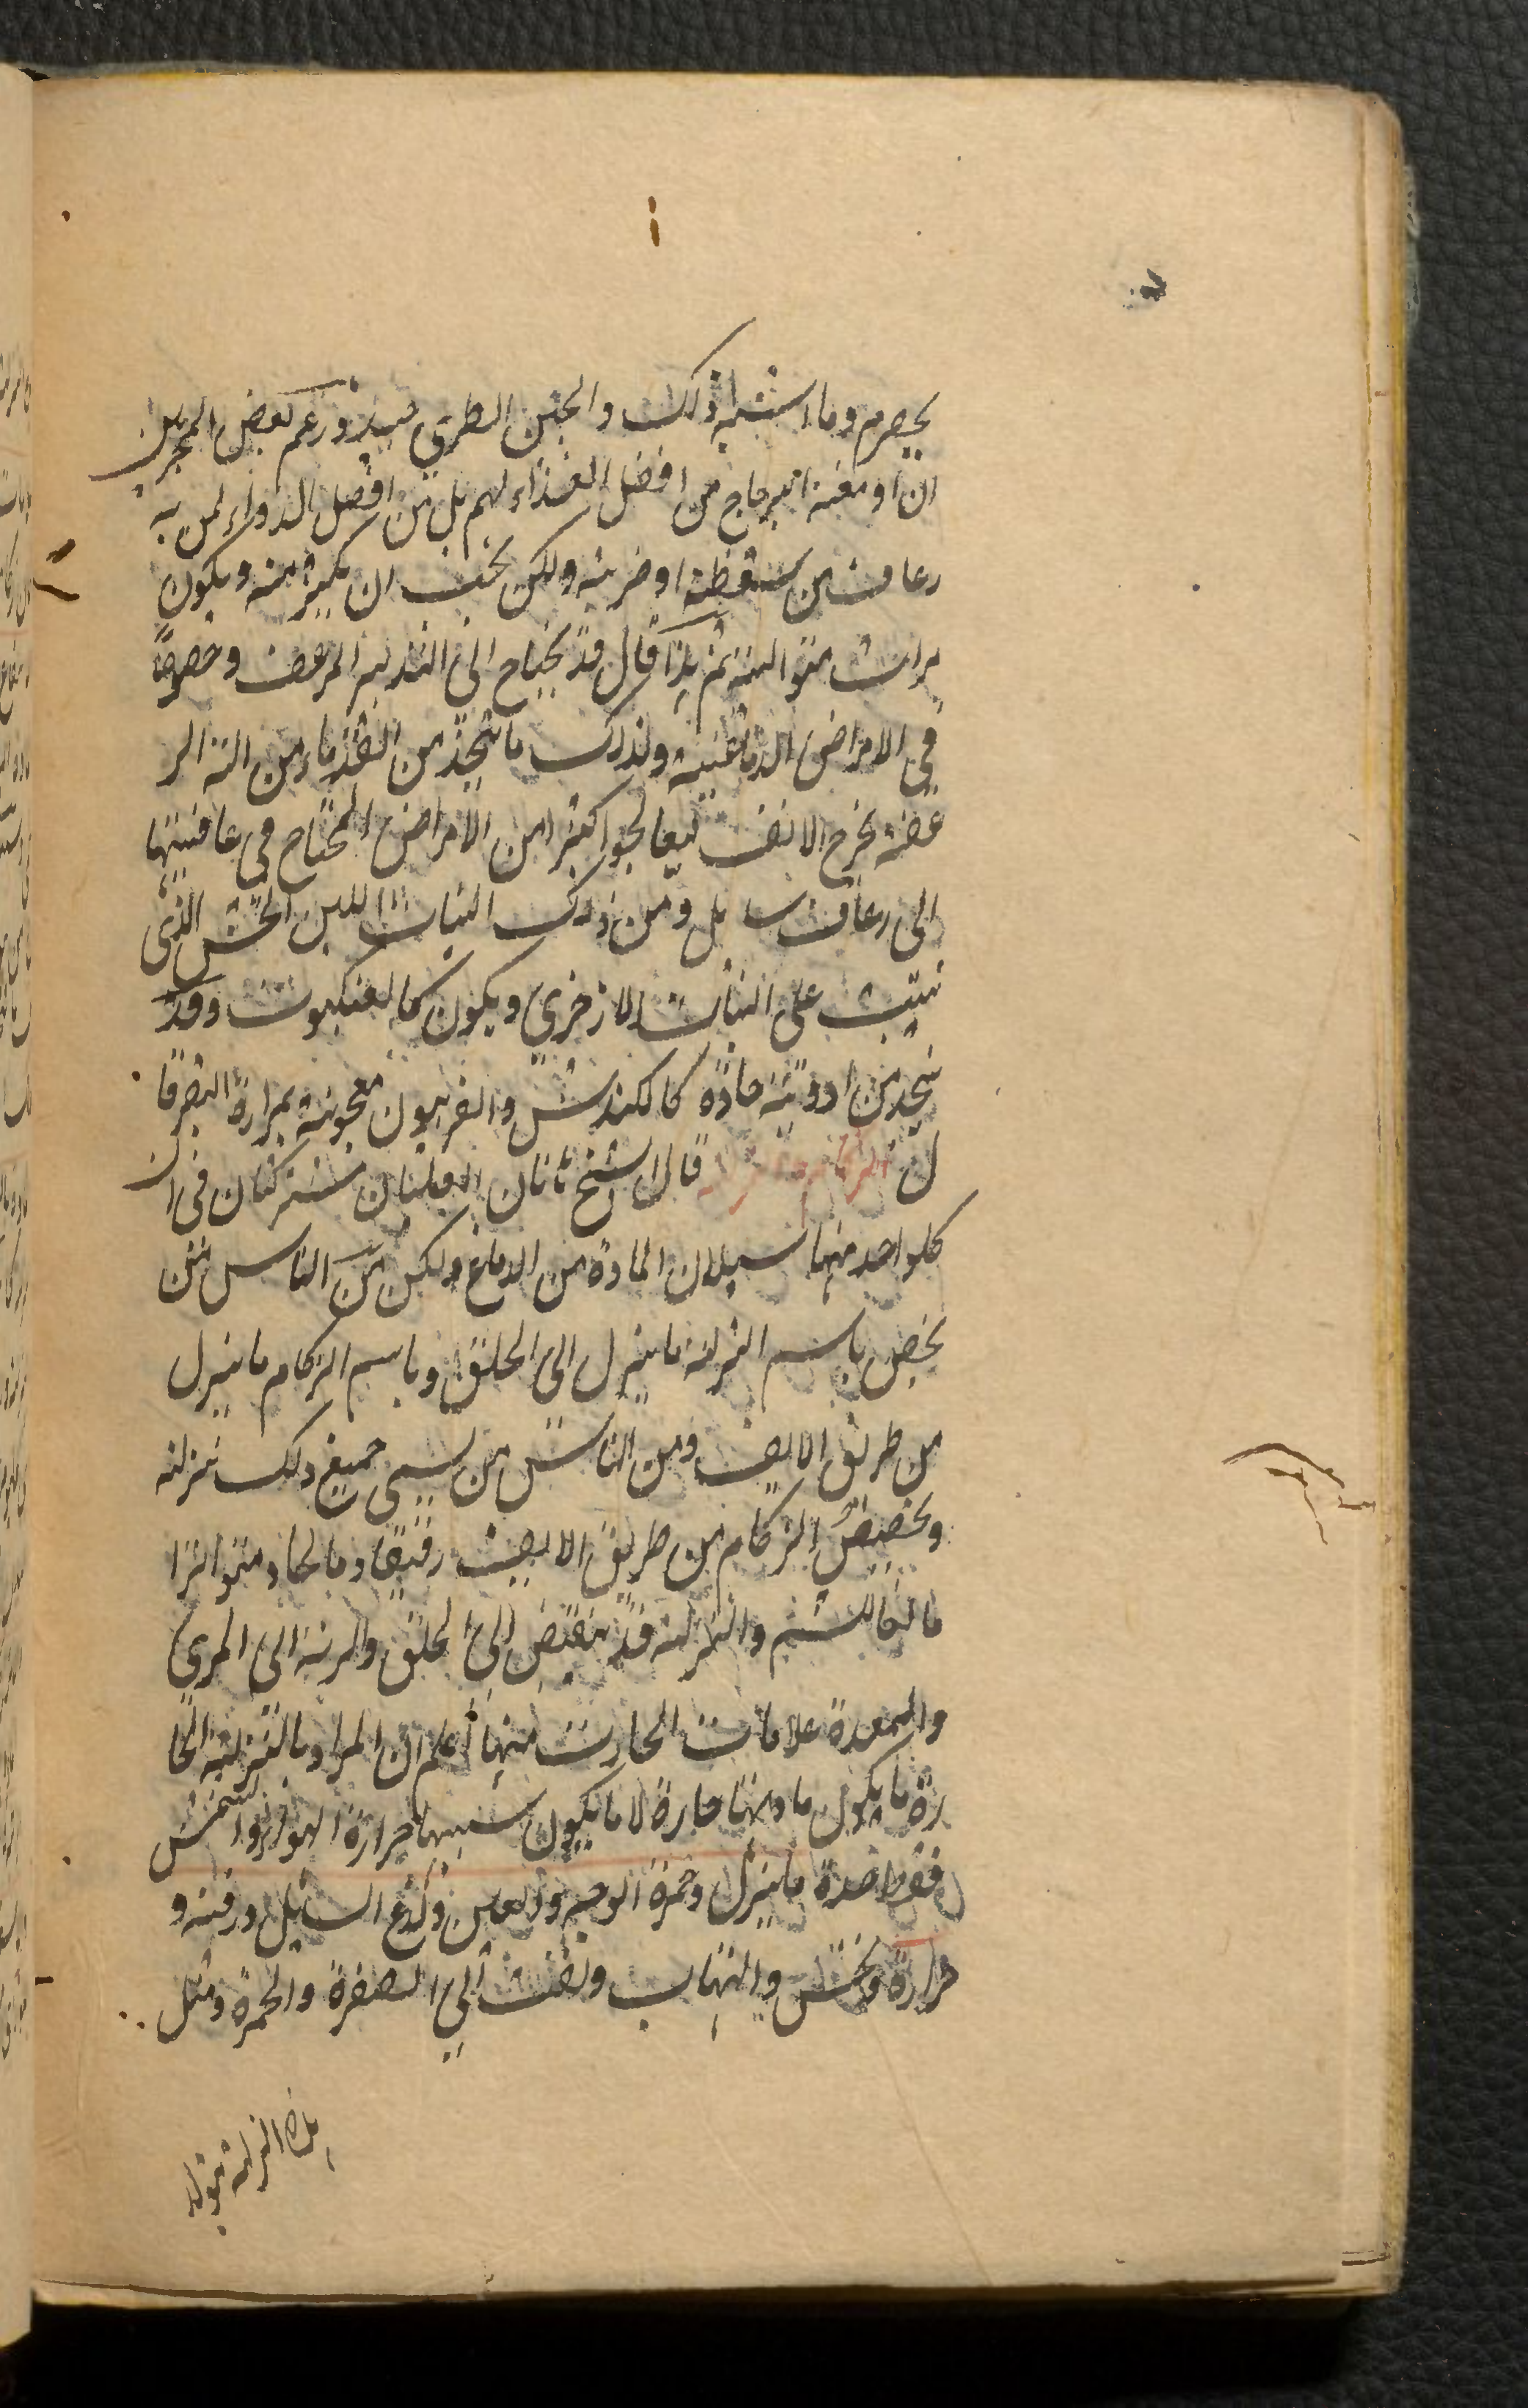 بحصرم وما اشبه ذلك والجبن الطري جيد وزعم بعض المجربين
ان ادمغة الدجاج من افضل الغذاء لهم بل من افضل الدواء لمن به
رعاف من سقطة او ضربة ولكن يجب ان يكثر منه ويكون
مرات متوالية ثم هذا قال قد يحتاج الى التدبير المرعف وخصوصاً
في الامراض الدماغية ولذلك ما يتخذ من القدماء من الة المر
عفة يخرج الانف ليعالجوا كثيرا من الامراض المحتاج في عافيتها
الى رعاف سايل ومن ذلك النبات اللين الخشن الذي
ينبت على النبات الاذخري ويكون كالعنكبوت وقد
يتخذ من ادوية حادة كالكندش والفربيون معجونة بمرارة البقر قا
ل الزكام والنزلة قال الشيخ هاتان العلتان مشتركتان في ان
كلواحد منهما سيلان المادة من الدماغ ولكن من الناس من
يخص باسم النزلة ما ينزل الى الحلق وباسم الزكام ما ينزل
من طريق الانف ومن الناس من يسمى جميع ذلك نزلة
ويخصص الزكام من طريق الانف رقيقا ومالحا ومتواترا
مانعا للشم والنزلة قد تنقبض الى الحلق والرئة الى المري
والمعدة علامات الحارة منها اعلم ان المراد بالنزلة الحا
رة ما يكون مادتها حارة لا ما يكون سببها حرارة الهواء والشمس
فقط حدة ما ينزل وحمرة الوجه والعين ولذع السائل ورقته و
حرارة ونخس والتهاب ونفث الى الصفرة والحمرة ومثل
هذه النزلة تولد